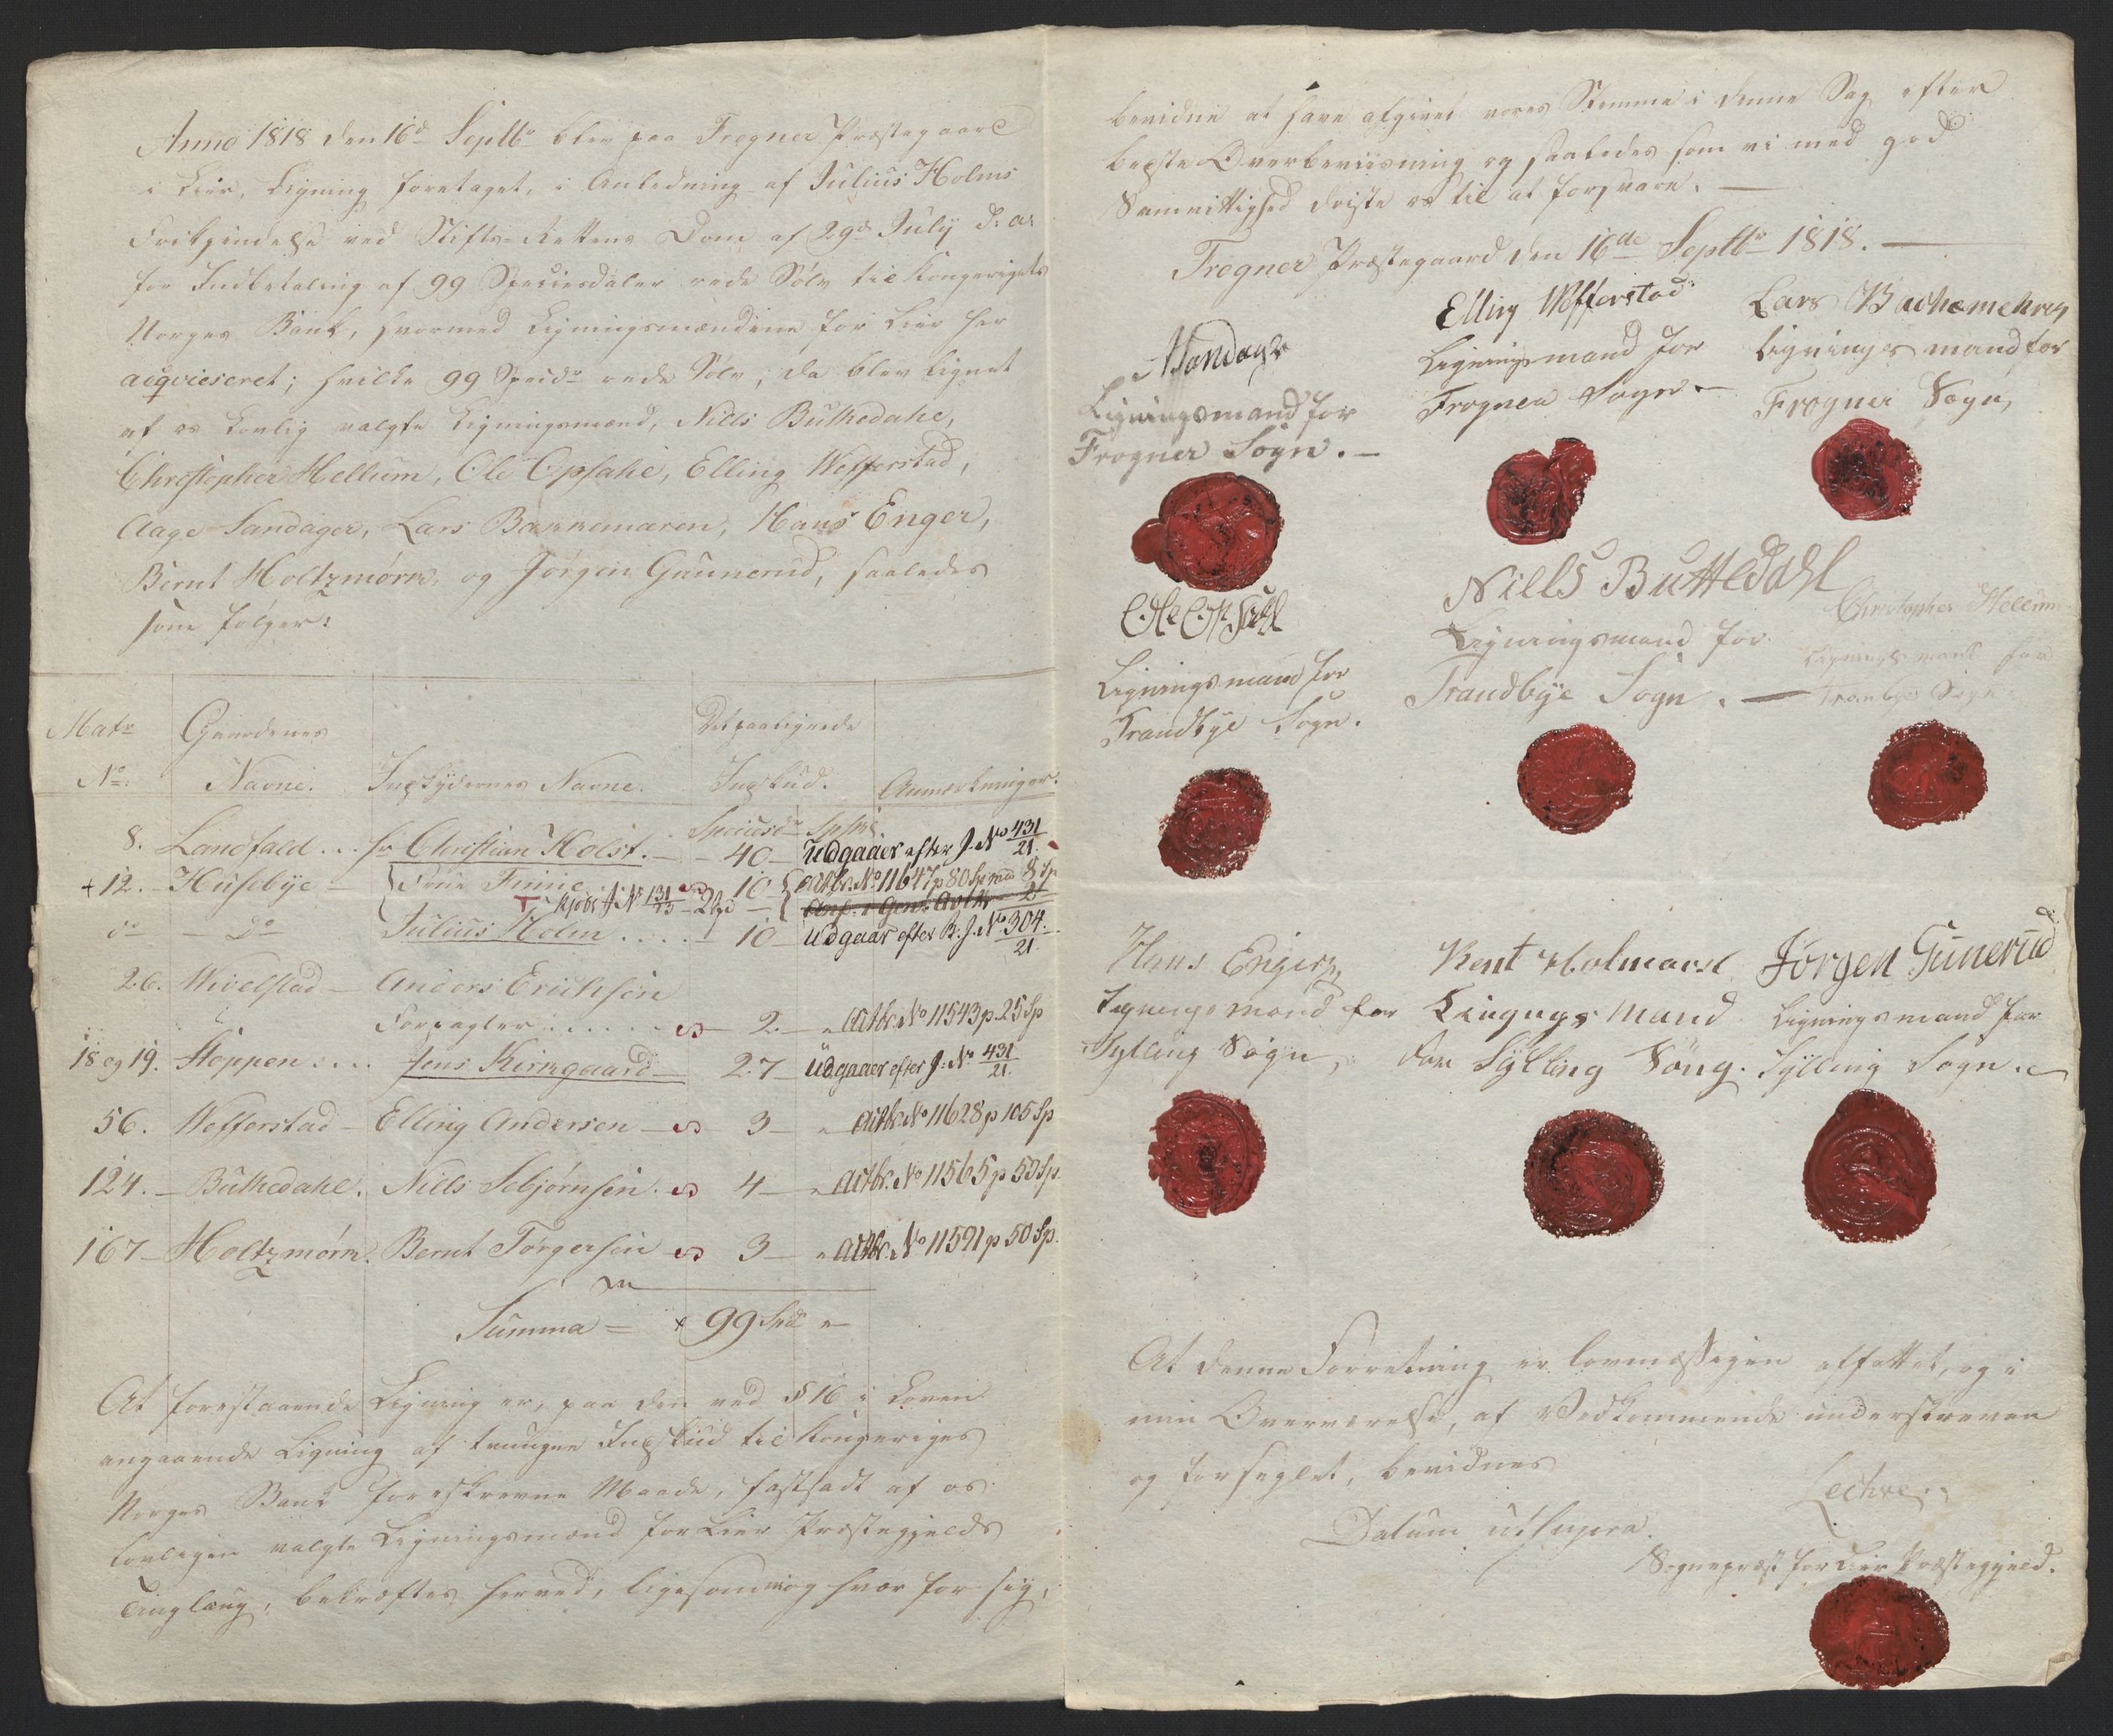 Anno 1818 den 16de Septbr blev paa Frogner Præstegaard
i Lier, Ligning foretaget, i Anledning af Julius Holms
Frikjendelse ved Stifts-Rettens Dom af 29de July d: a:
for Indbetaling af 99 Speciesdaler rede Sølv til Kongeriget
Norges Bank, hvormed Ligningsmændene for Lier har
acqvieseret; hvilke 99 Specidr rede Sølv, da blev lignet
af os lovlig valgte Ligningsmænd, Niels Bulkedahl,
Christopher Hellum, Ole Opsahl, Elling Wefferstad,
Aage Sandager, Lars Bakkemaren, Hans Enger,
Bernt Holtzmørn, og Jørgen Gunnerud, saaledes
som følger:
Matr Gaardenes Det paalignede
No: Navne. Indskydernes Navne. Indskud. Anmærkninger.
Speciesdr Sp sk
8. Landfald... hr Christian Holst. — 40 — Udgaaer efter J. No 431/21.
+ 12. — Husebye — Frue Tinne 10 Actbr. No 11647 p 80 Sp med 8 Sp
T kjøbt A No 131/15 — 2
do — Do Julius Holm.... — 10 — Udgaar efter R. J. No. 304./21.
26. Wivelstad — Anders Erichsen
Forpagter...... 2. — " Actbr. No 11543 p. 25 Sp
18 og 19. Stoppen.... Jens Kirkgaard — 27 — Udgaaer efter J. No. 431/21.
56. Wefferstad — Elling Andersen — 3 — " Actbr. No 11628 p 105 Sp
124. — Bulkedahl. Niels Asbjørnsen. 4 — " Actbr. No 11565 p 55 Sp.
167 — Holtzmørn. Bernt Torgersen 3 — " Actbr. No 11591 p 50 Sp.
Summa = x 99 Spd "
At forestaaende Ligning er, paa den ved § 16 i Loven
angaaende Ligning af tvungne Indskud til Kongeriges
Norges Bank foreskrevne Maade, fastsadt af os
lovligen valgte Ligningsmænd for Lier Præstegjelds
Tinglaug, bekræftes herved, ligesom vi og hver for sig,
bevidne at have afgivet vores Stemme i denne Sag efter
bedste Overbeviisning og saaledes som vi med god
Samvittighed driste os til at forsvare. —
Frogner Præstegaard den 16de Septbr 1818. —
Sandager
Ligningsmand for
Frogner Sogn. —
Elling Wefferstad
Ligningsmand for
Frogner Sogn —
Lars
Ligningsmand for
Frogner Sogn,
Ole Opsahl
Ligningsmand for
Trandbye Sogn.
Niels Butledahl
Ligningsmand for
Trandbye Sogn. —
Christopher Hellum
Ligningsmand for
Tranbye Sogn
Hans Enger
Ligningsmand for
Sylling Sogn,
Bent Holmarsl
Lingngs Mand
for Sylling Song.
Jörgen Gunerud
Ligningsmand for
Sylling Sogn.
At denne Forretning er lovmæssigen affattet, og i
min Overværelse, af Vedkommende underskreven
og forseglet, bevidnes
Datum ut supra.
Lechve
Sognepræst for Lier Præstegjeld.